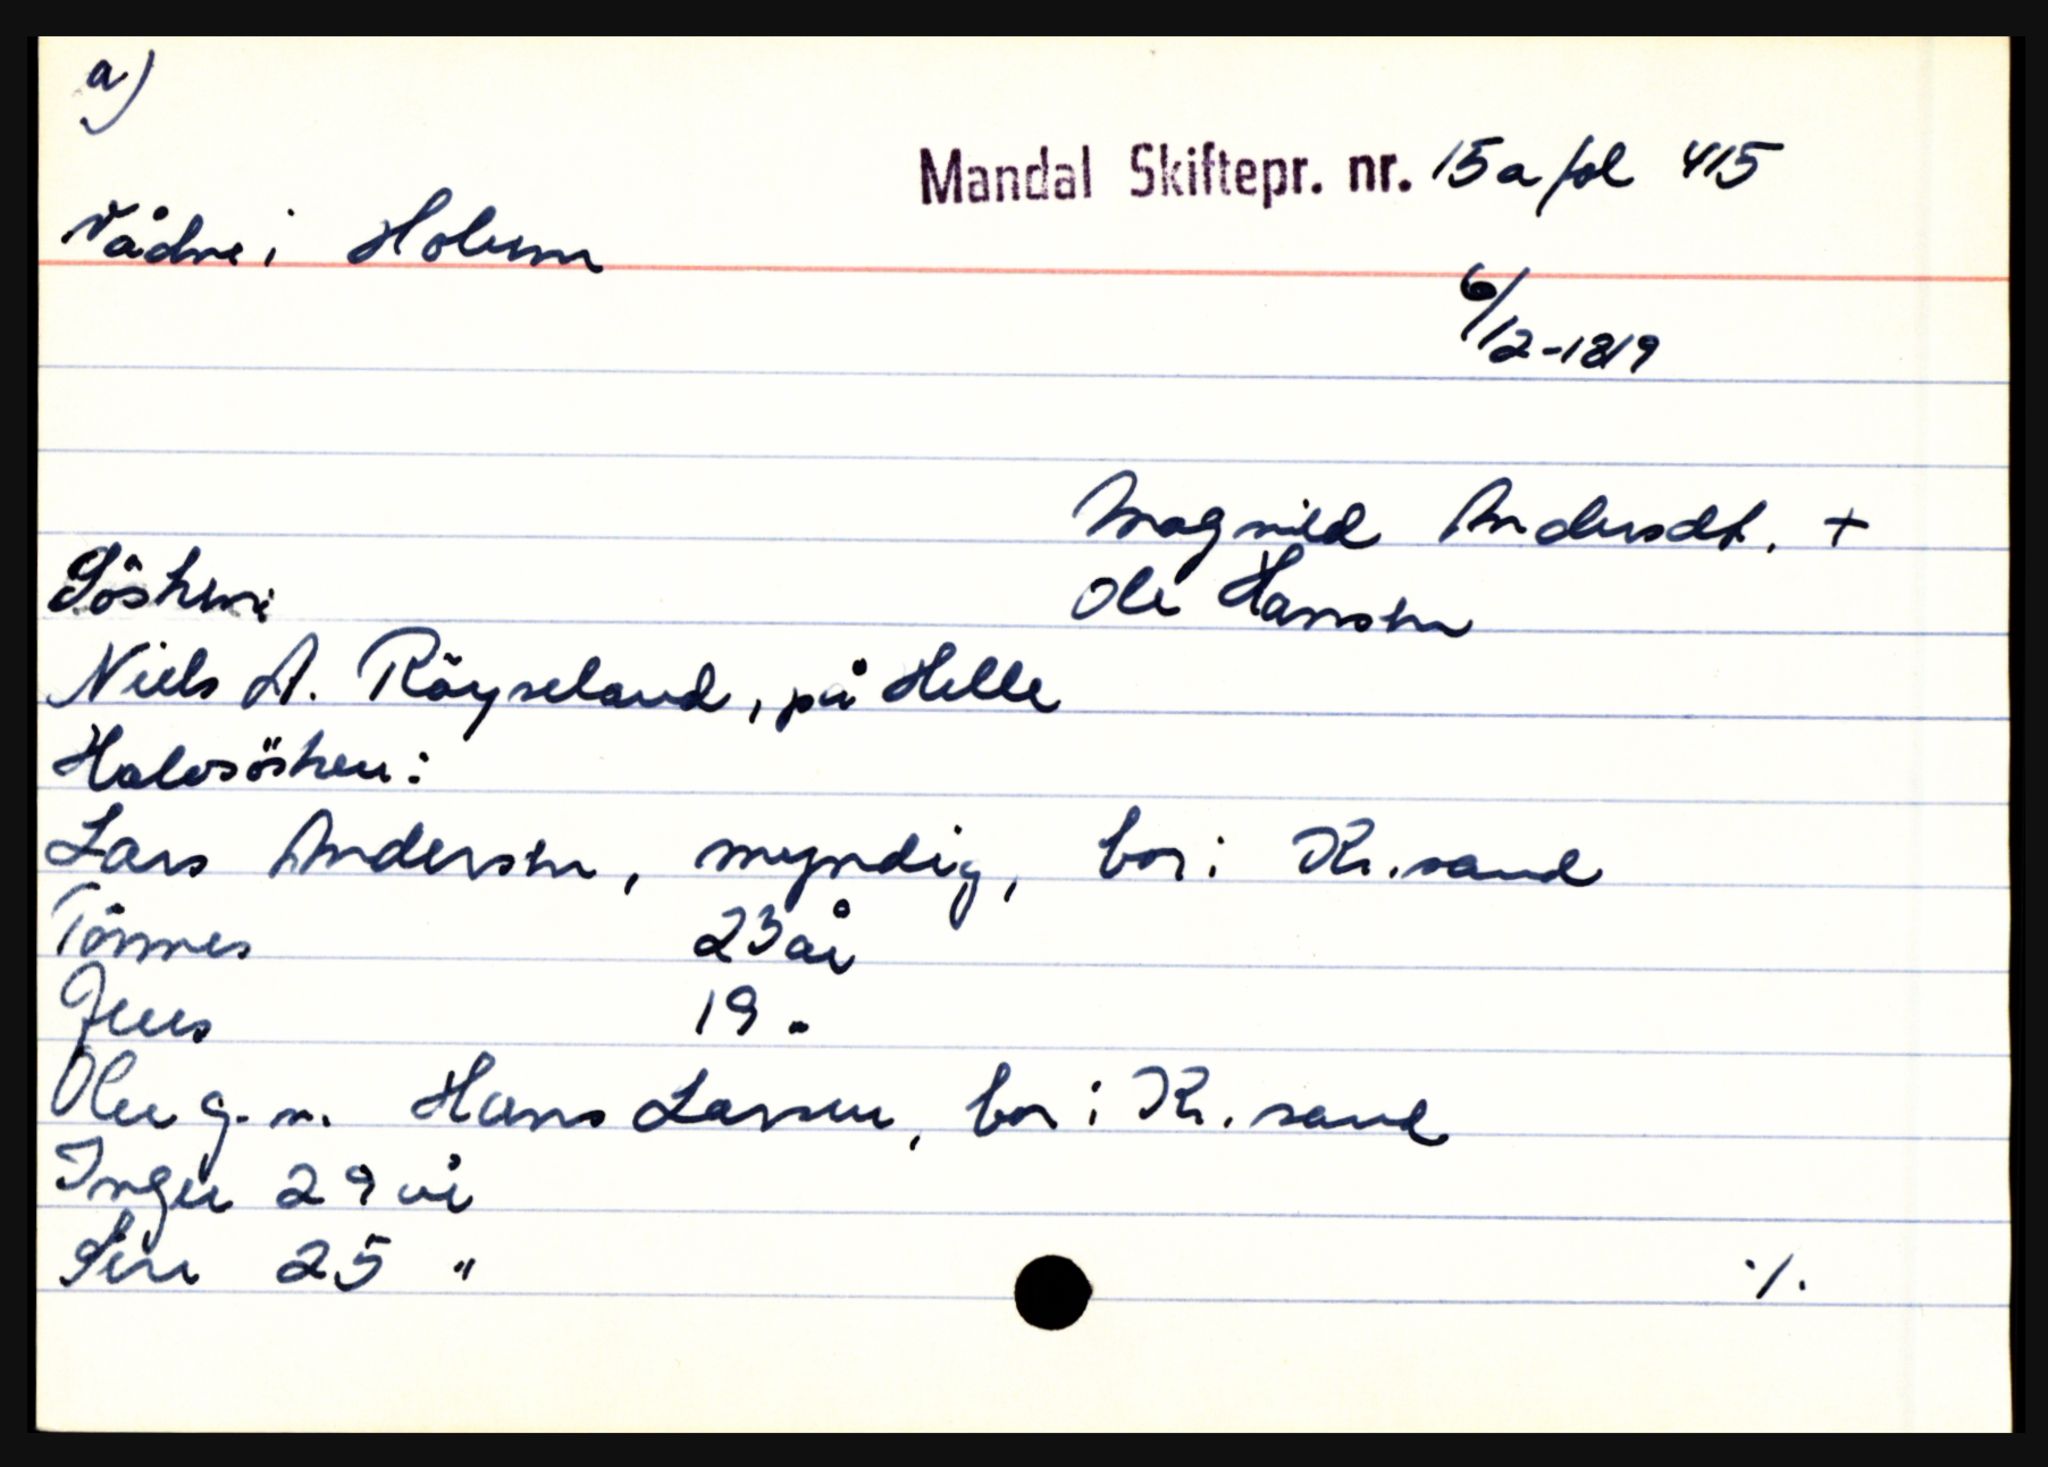 a)
Mandal Skiftepr. nr. 15a fol 415
Vådne i Holum
6/12-1819
Magnild Andersdt. +
Ole Hansen
Sösken:
Niels A. Röyseland, på Helle
Halvsösken:
Lars Andersen, myndig, bor i Kr.sand
Tönnes 23 år
Jens 19 "
Olee g.m. Hans Larsen, bor i Kr.sand
Inger 29 år
Siri 25 "
./.